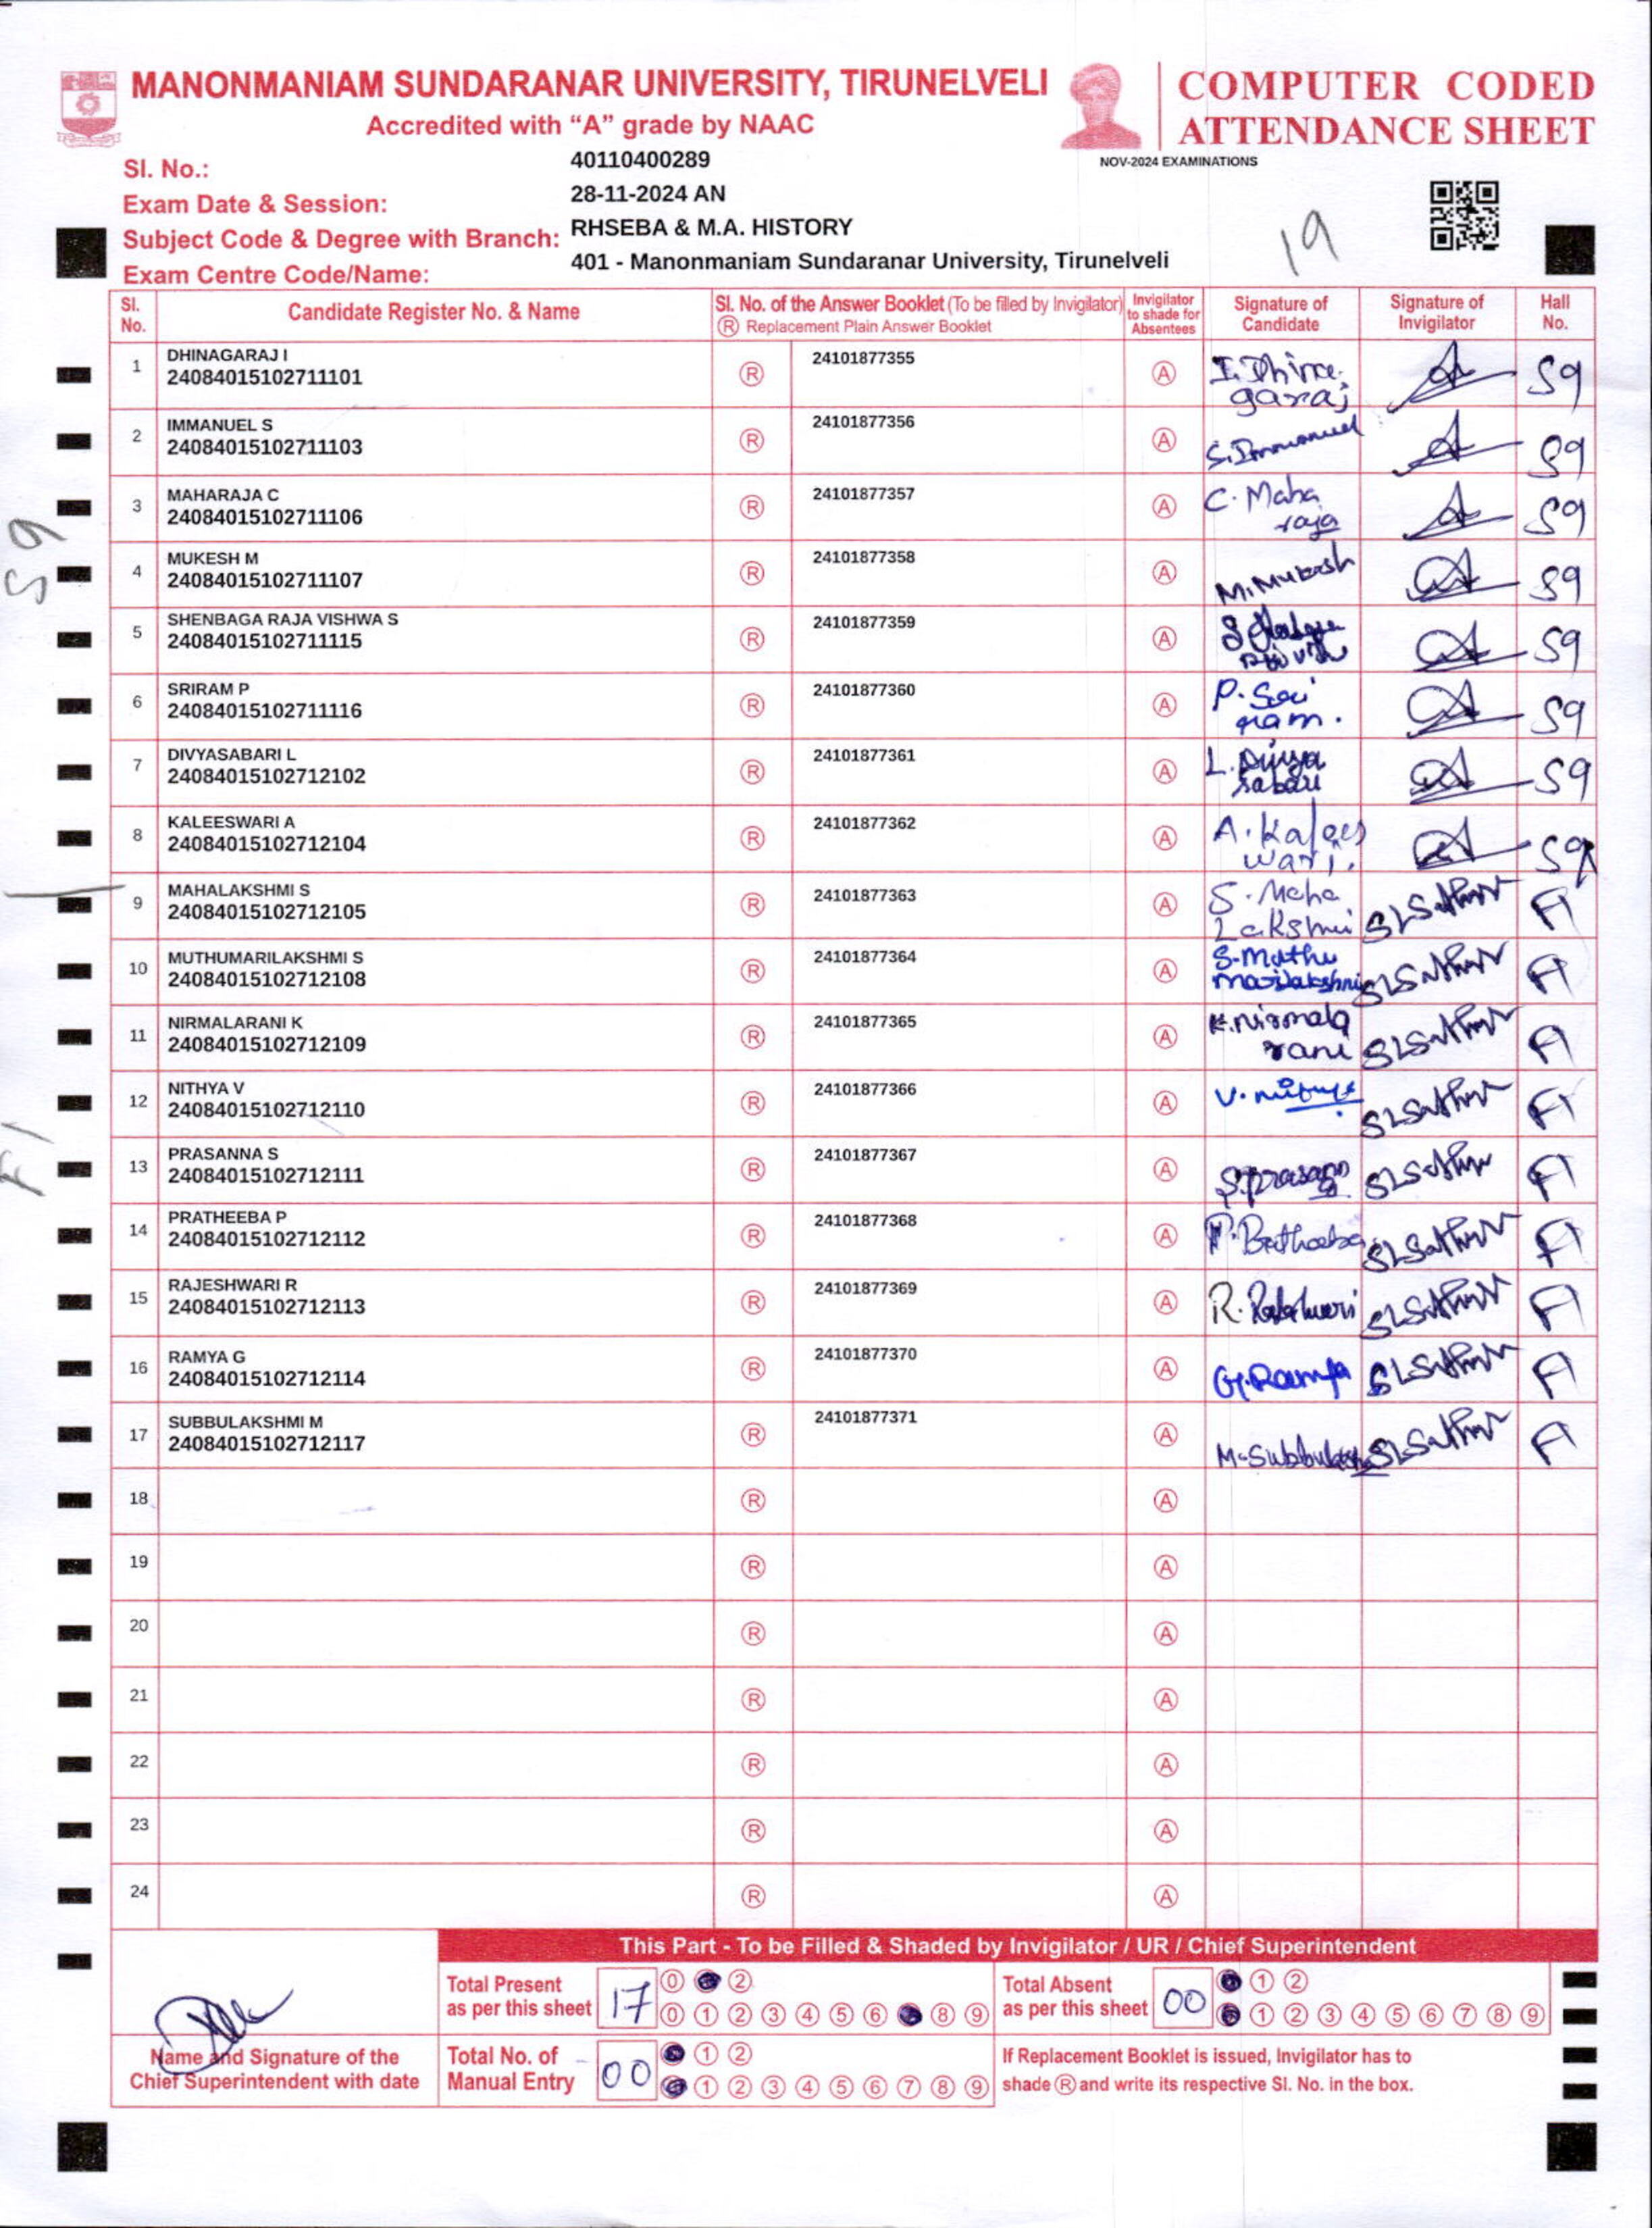 MANONMANIAM SUNDARANAR UNIVERSITY, TIRUNELVELI
Accredited with “A” grade by NAAC
COMPUTER CODED
ATTENDANCE SHEET
NOV-2024 EXAMINATIONS
Sl. No.: 40110400289
Exam Date & Session: 28-11-2024 AN
Subject Code & Degree with Branch: RHSEBA & M.A. HISTORY
Exam Centre Code/Name: 401 - Manonmaniam Sundaranar University, Tirunelveli
19
Sl. No. Candidate Register No. & Name Sl. No. of the Answer Booklet (To be filled by Invigilator) Ⓡ Replacement Plain Answer Booklet Invigilator to shade for Absentees Signature of Candidate Signature of Invigilator Hall No.
1 DHINAGARAJ I 24084015102711101 Ⓡ 24101877355 Ⓐ I. Dhina garaj S9
2 IMMANUEL S 24084015102711103 Ⓡ 24101877356 Ⓐ S. Immanuel S9
3 MAHARAJA C 24084015102711106 Ⓡ 24101877357 Ⓐ C. Maha raja S9
4 MUKESH M 24084015102711107 Ⓡ 24101877358 Ⓐ M. Mukesh S9
5 SHENBAGA RAJA VISHWA S 24084015102711115 Ⓡ 24101877359 Ⓐ S9
6 SRIRAM P 24084015102711116 Ⓡ 24101877360 Ⓐ P. Sri ram. S9
7 DIVYASABARI L 24084015102712102 Ⓡ 24101877361 Ⓐ L. Divya sabari S9
8 KALEESWARI A 24084015102712104 Ⓡ 24101877362 Ⓐ A. Kalees wari. S9
9 MAHALAKSHMI S 24084015102712105 Ⓡ 24101877363 Ⓐ S. Maha Lakshmi F1
10 MUTHUMARILAKSHMI S 24084015102712108 Ⓡ 24101877364 Ⓐ S. Muthu marilakshmi F1
11 NIRMALARANI K 24084015102712109 Ⓡ 24101877365 Ⓐ K. Nirmala rani F1
12 NITHYA V 24084015102712110 Ⓡ 24101877366 Ⓐ F1
13 PRASANNA S 24084015102712111 Ⓡ 24101877367 Ⓐ F1
14 PRATHEEBA P 24084015102712112 Ⓡ 24101877368 Ⓐ F1
15 RAJESHWARI R 24084015102712113 Ⓡ 24101877369 Ⓐ F1
16 RAMYA G 24084015102712114 Ⓡ 24101877370 Ⓐ G. Ramya F1
17 SUBBULAKSHMI M 24084015102712117 Ⓡ 24101877371 Ⓐ F1
18 Ⓡ Ⓐ
19 Ⓡ Ⓐ
20 Ⓡ Ⓐ
21 Ⓡ Ⓐ
22 Ⓡ Ⓐ
23 Ⓡ Ⓐ
24 Ⓡ Ⓐ
S9
F1
This Part - To be Filled & Shaded by Invigilator / UR / Chief Superintendent
Total Present as per this sheet 17 ⓪ ②
⓪ ① ② ③ ④ ⑤ ⑥ ⑧ ⑨
Total Absent as per this sheet 00 ① ②
① ② ③ ④ ⑤ ⑥ ⑦ ⑧ ⑨
Total No. of Manual Entry 00 ① ②
① ② ③ ④ ⑤ ⑥ ⑦ ⑧ ⑨
If Replacement Booklet is issued, Invigilator has to
shade Ⓡ and write its respective Sl. No. in the box.
Name and Signature of the
Chief Superintendent with date